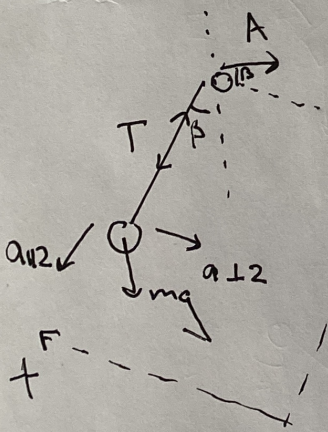 A
β
β
T
a॥2
a⊥2
mg
F
+